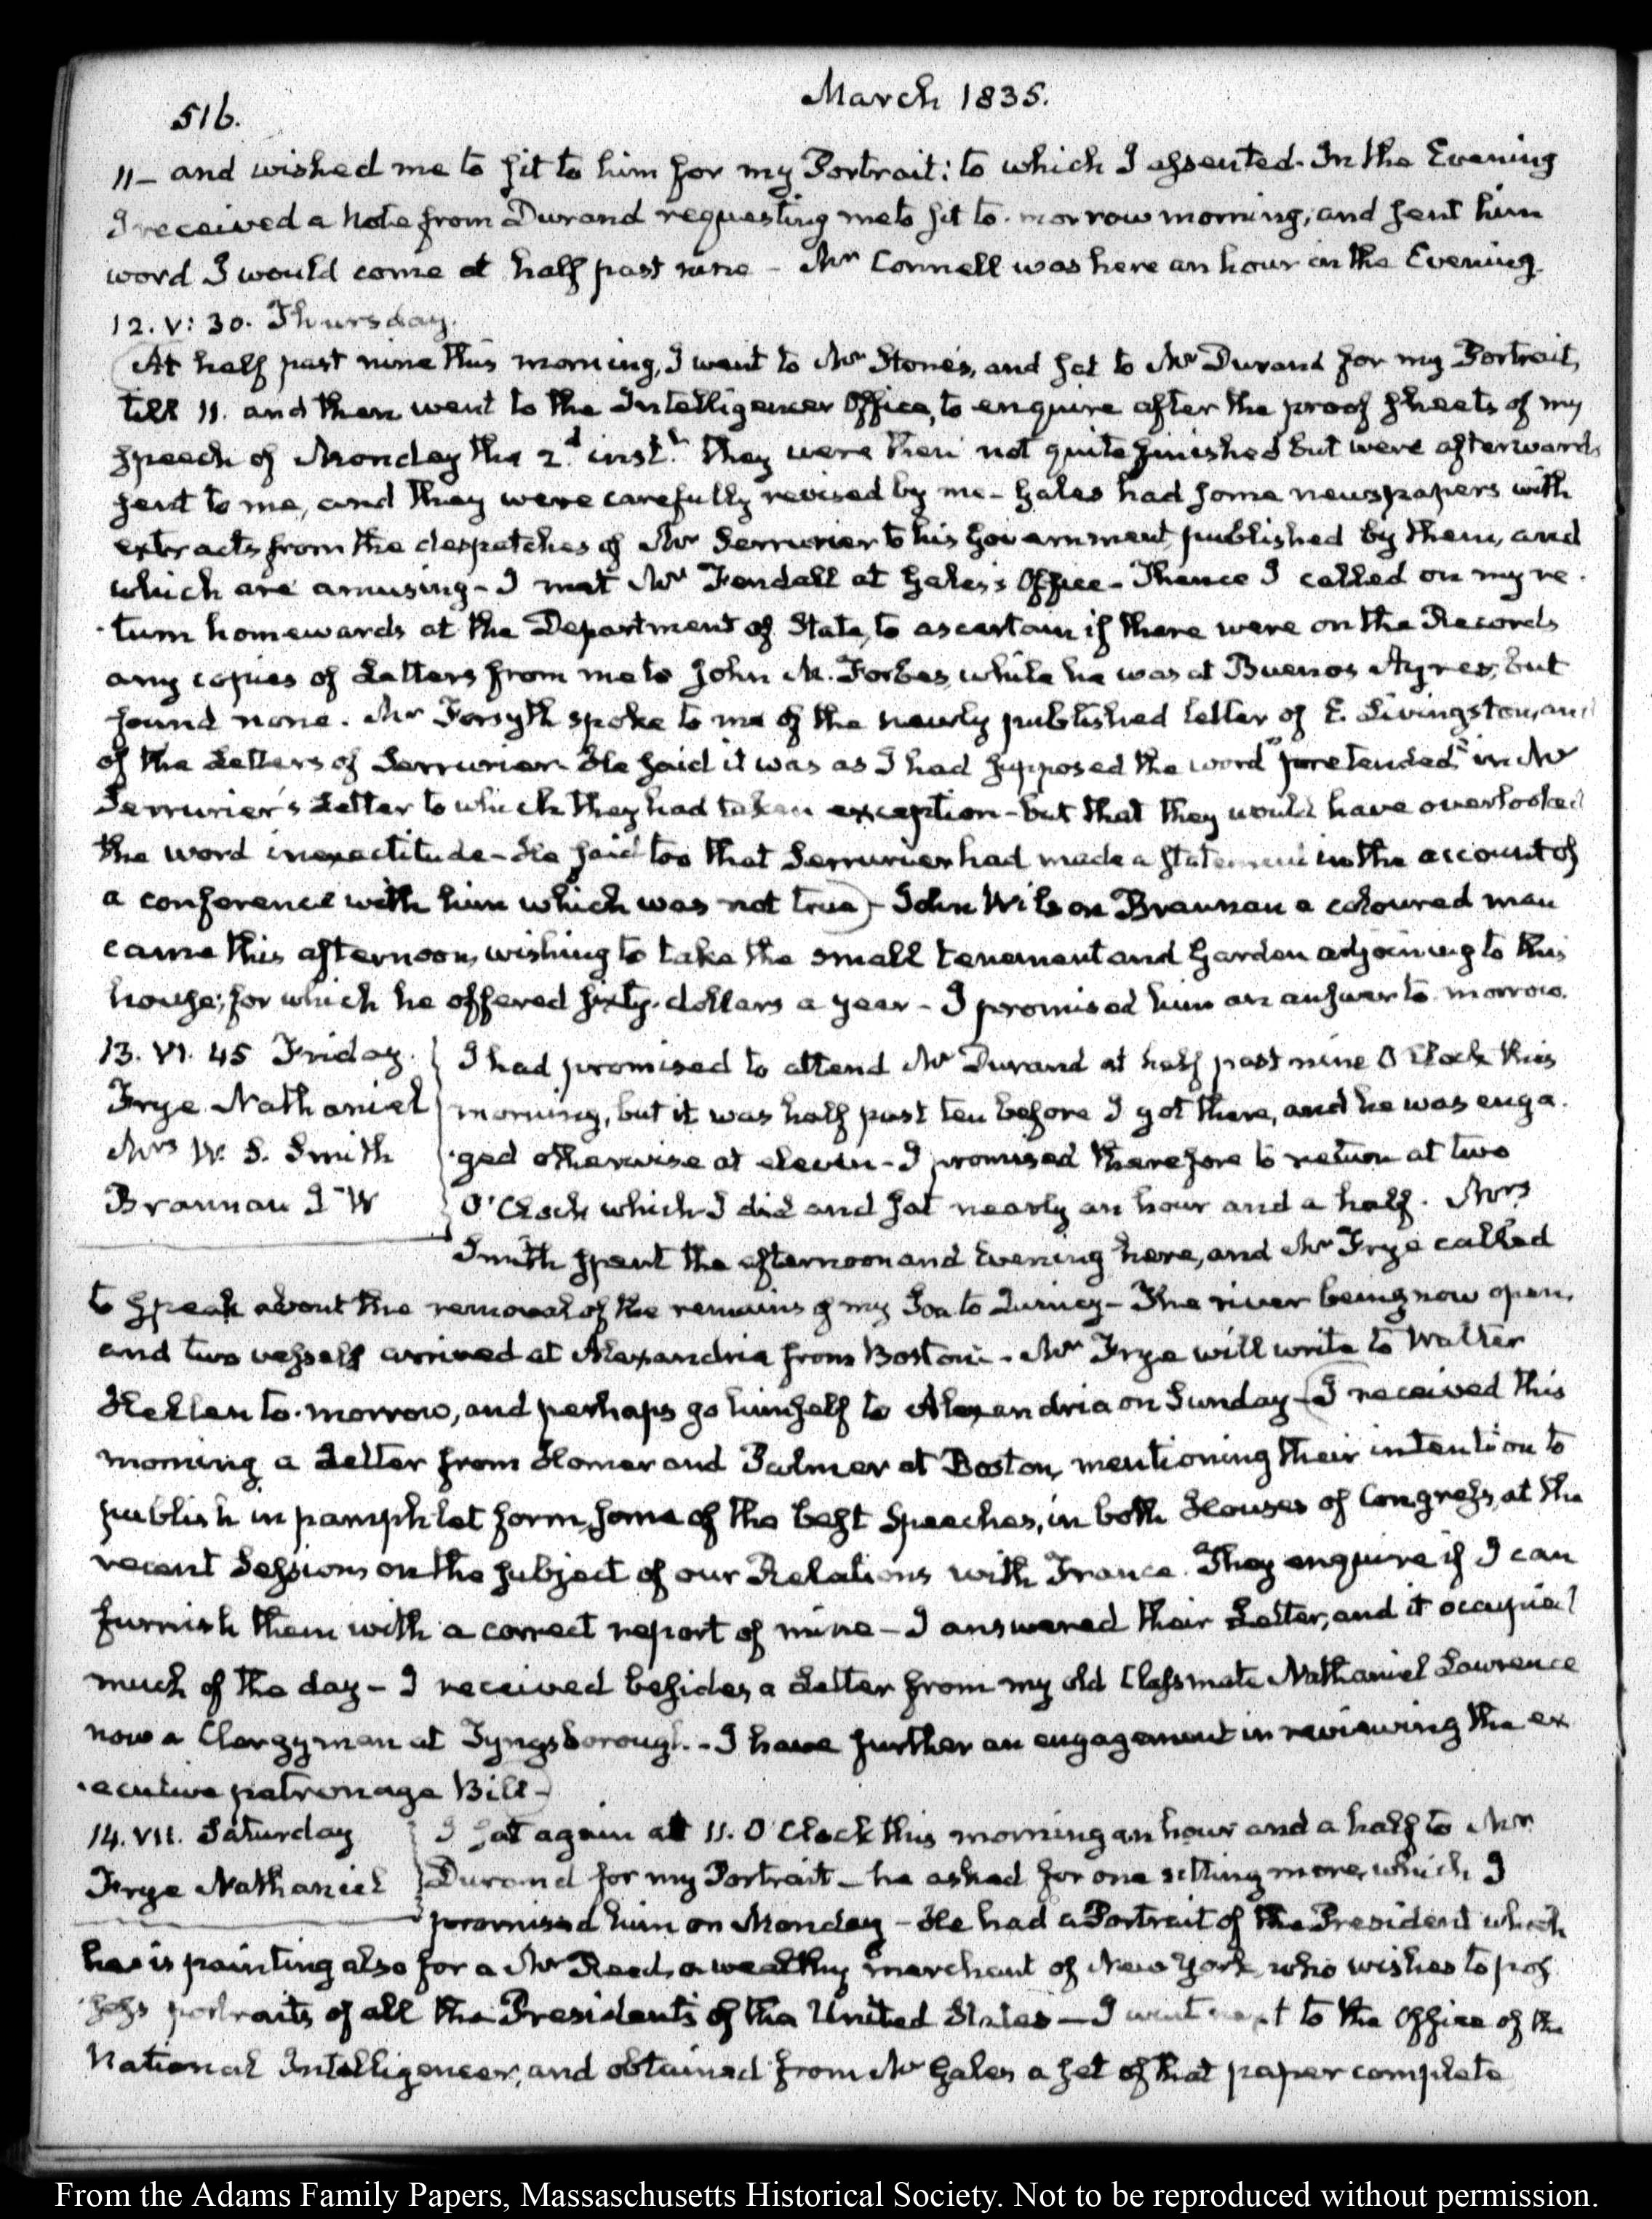 516.
March 1835.
11 – and wished me to sit to him for my Portrait: to which I assented. In the Evening
I received a Note from Durand requesting me to sit to-morrow morning, and sent him
word I would come at half past nine – Mr Connell was here an hour in the Evening.
12. V: 30. Thursday.
At half past nine this morning, I went to Mr Stone's, and sat to Mr Durand for my Portrait,
till 11. and then went to the Intelligencer Office, to enquire after the proof sheets of my
speech of Monday the 2d inst.t they were then not quite finished but were afterwards
sent to me, and they were carefully revised by me – Gales had some newspapers with
extracts from the despatches of Mr Serrurier to his Government, published by them, and
which are amusing – I met Mr Fendall at Gales's Office – Thence I called on my re-
-turn homewards at the Department of State, to ascertain if there were on the Records
any copies of Letters from me to John M. Forbes, while he was at Buenos Ayres; but
found none. Mr Forsyth spoke to me of the newly published letter of E. Livingston, and
of the Letters of Serrurier – He said it was as I had supposed the word "pretended" in Mr
Serrurier's Letter to which they had taken exception – but that they would have overlooked
the word inexactitude – He said too that Serrurier had made a statement in the account of
a conference with him which was not true) – John Wilson Brannan a coloured man
came this afternoon, wishing to take the small tenement and Garden adjoining to this
house; for which he offered sixty-dollars a year – I promised him an answer to-morrow.
13. VI. 45 Friday.
Frye Nathaniel
Mrs W. S. Smith
Brannan J W
I had promised to attend Mr Durand at half past nine O'Clock this
morning, but it was half past ten before I got there, and he was enga-
-ged otherwise at eleven – I promised therefore to return at two
O'Clock which I did and sat nearly an hour and a half. Mrs
Smith spent the afternoon and Evening here, and Mr Frye called
to speak about the removal of the remains of my Son to Quincy – The river being now open,
and two vessels arrived at Alexandria from Boston – Mr Frye will write to Walter
Hellen to-morrow, and perhaps go himself to Alexandria on Sunday – (I received this
morning a Letter from Homer and Palmer at Boston, mentioning their intention to
publish in pamphlet form, some of the best Speeches, in both Houses of Congress, at the
recent Session on the subject of our Relations with France. They enquire if I can
furnish them with a correct report of mine – I answered their Letter, and it occupied
much of the day – I received besides, a Letter from my old Classmate Nathaniel Lawrence
now a Clergyman at Tyngsborough. – I have further an engagement in reviewing the ex-
-ecutive patronage Bill –)
14. VII. Saturday
Frye Nathaniel
I sat again at 11. O'Clock this morning an hour and a half to Mr
Durand for my Portrait – he asked for one sitting more, which I
promised him on Monday – He had a Portrait of the President which
he is painting also for a Mr Reed, a wealthy merchant of New York, who wishes to pos-
-sess portraits of all the Presidents of the United States – I went next to the Office of the
National Intelligencer, and obtained from Mr Gales a set of that paper complete
From the Adams Family Papers, Massaschusetts Historical Society. Not to be reproduced without permission.